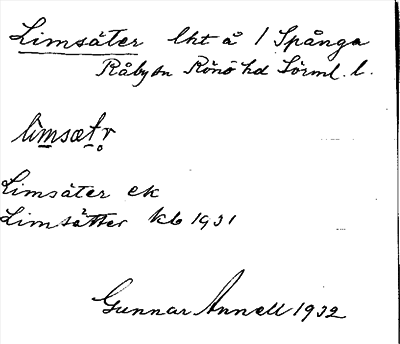 Limsäter lht å 1 Spånga
Råby sn Rönö hd Sörml. l.
limsætr̥
Limsäter ek
Limsätter kb 1931
Gunnar Annell 1932